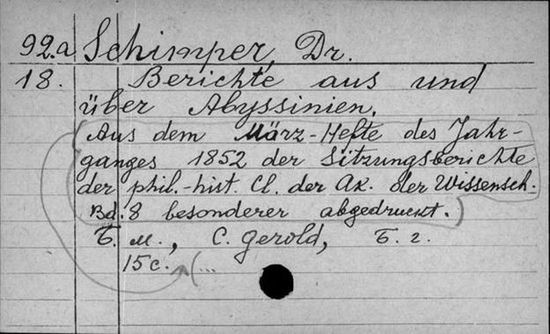 92.a Schimper, Dr.
18. Berichte aus und
über Abyssinien.
(Aus dem März-Hefte des Jahr-
ganges 1852 der Sitzungsberichte
der phil.-hist. Cl. der Ak. der Wissensch.
Bd. 8 besonderer abgedruckt.)
Б. м., C. Gerold, Б. г.
15 с. (...